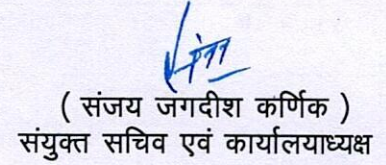 ( संजय जगदीश कर्णिक )
संयुक्त सचिव एवं कार्यालयाध्यक्ष